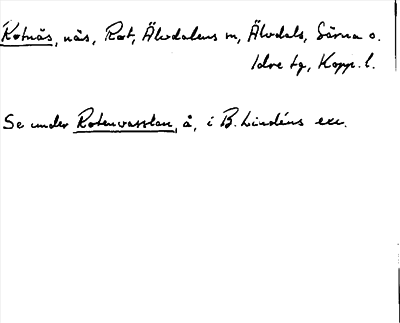 Rotnäs, näs, Rot, Älvdalens sn, Älvdals, Särna o.
Idre tg, Kopp. l.
Se under Rotenvasslan, å, i B. Lindéns exc.